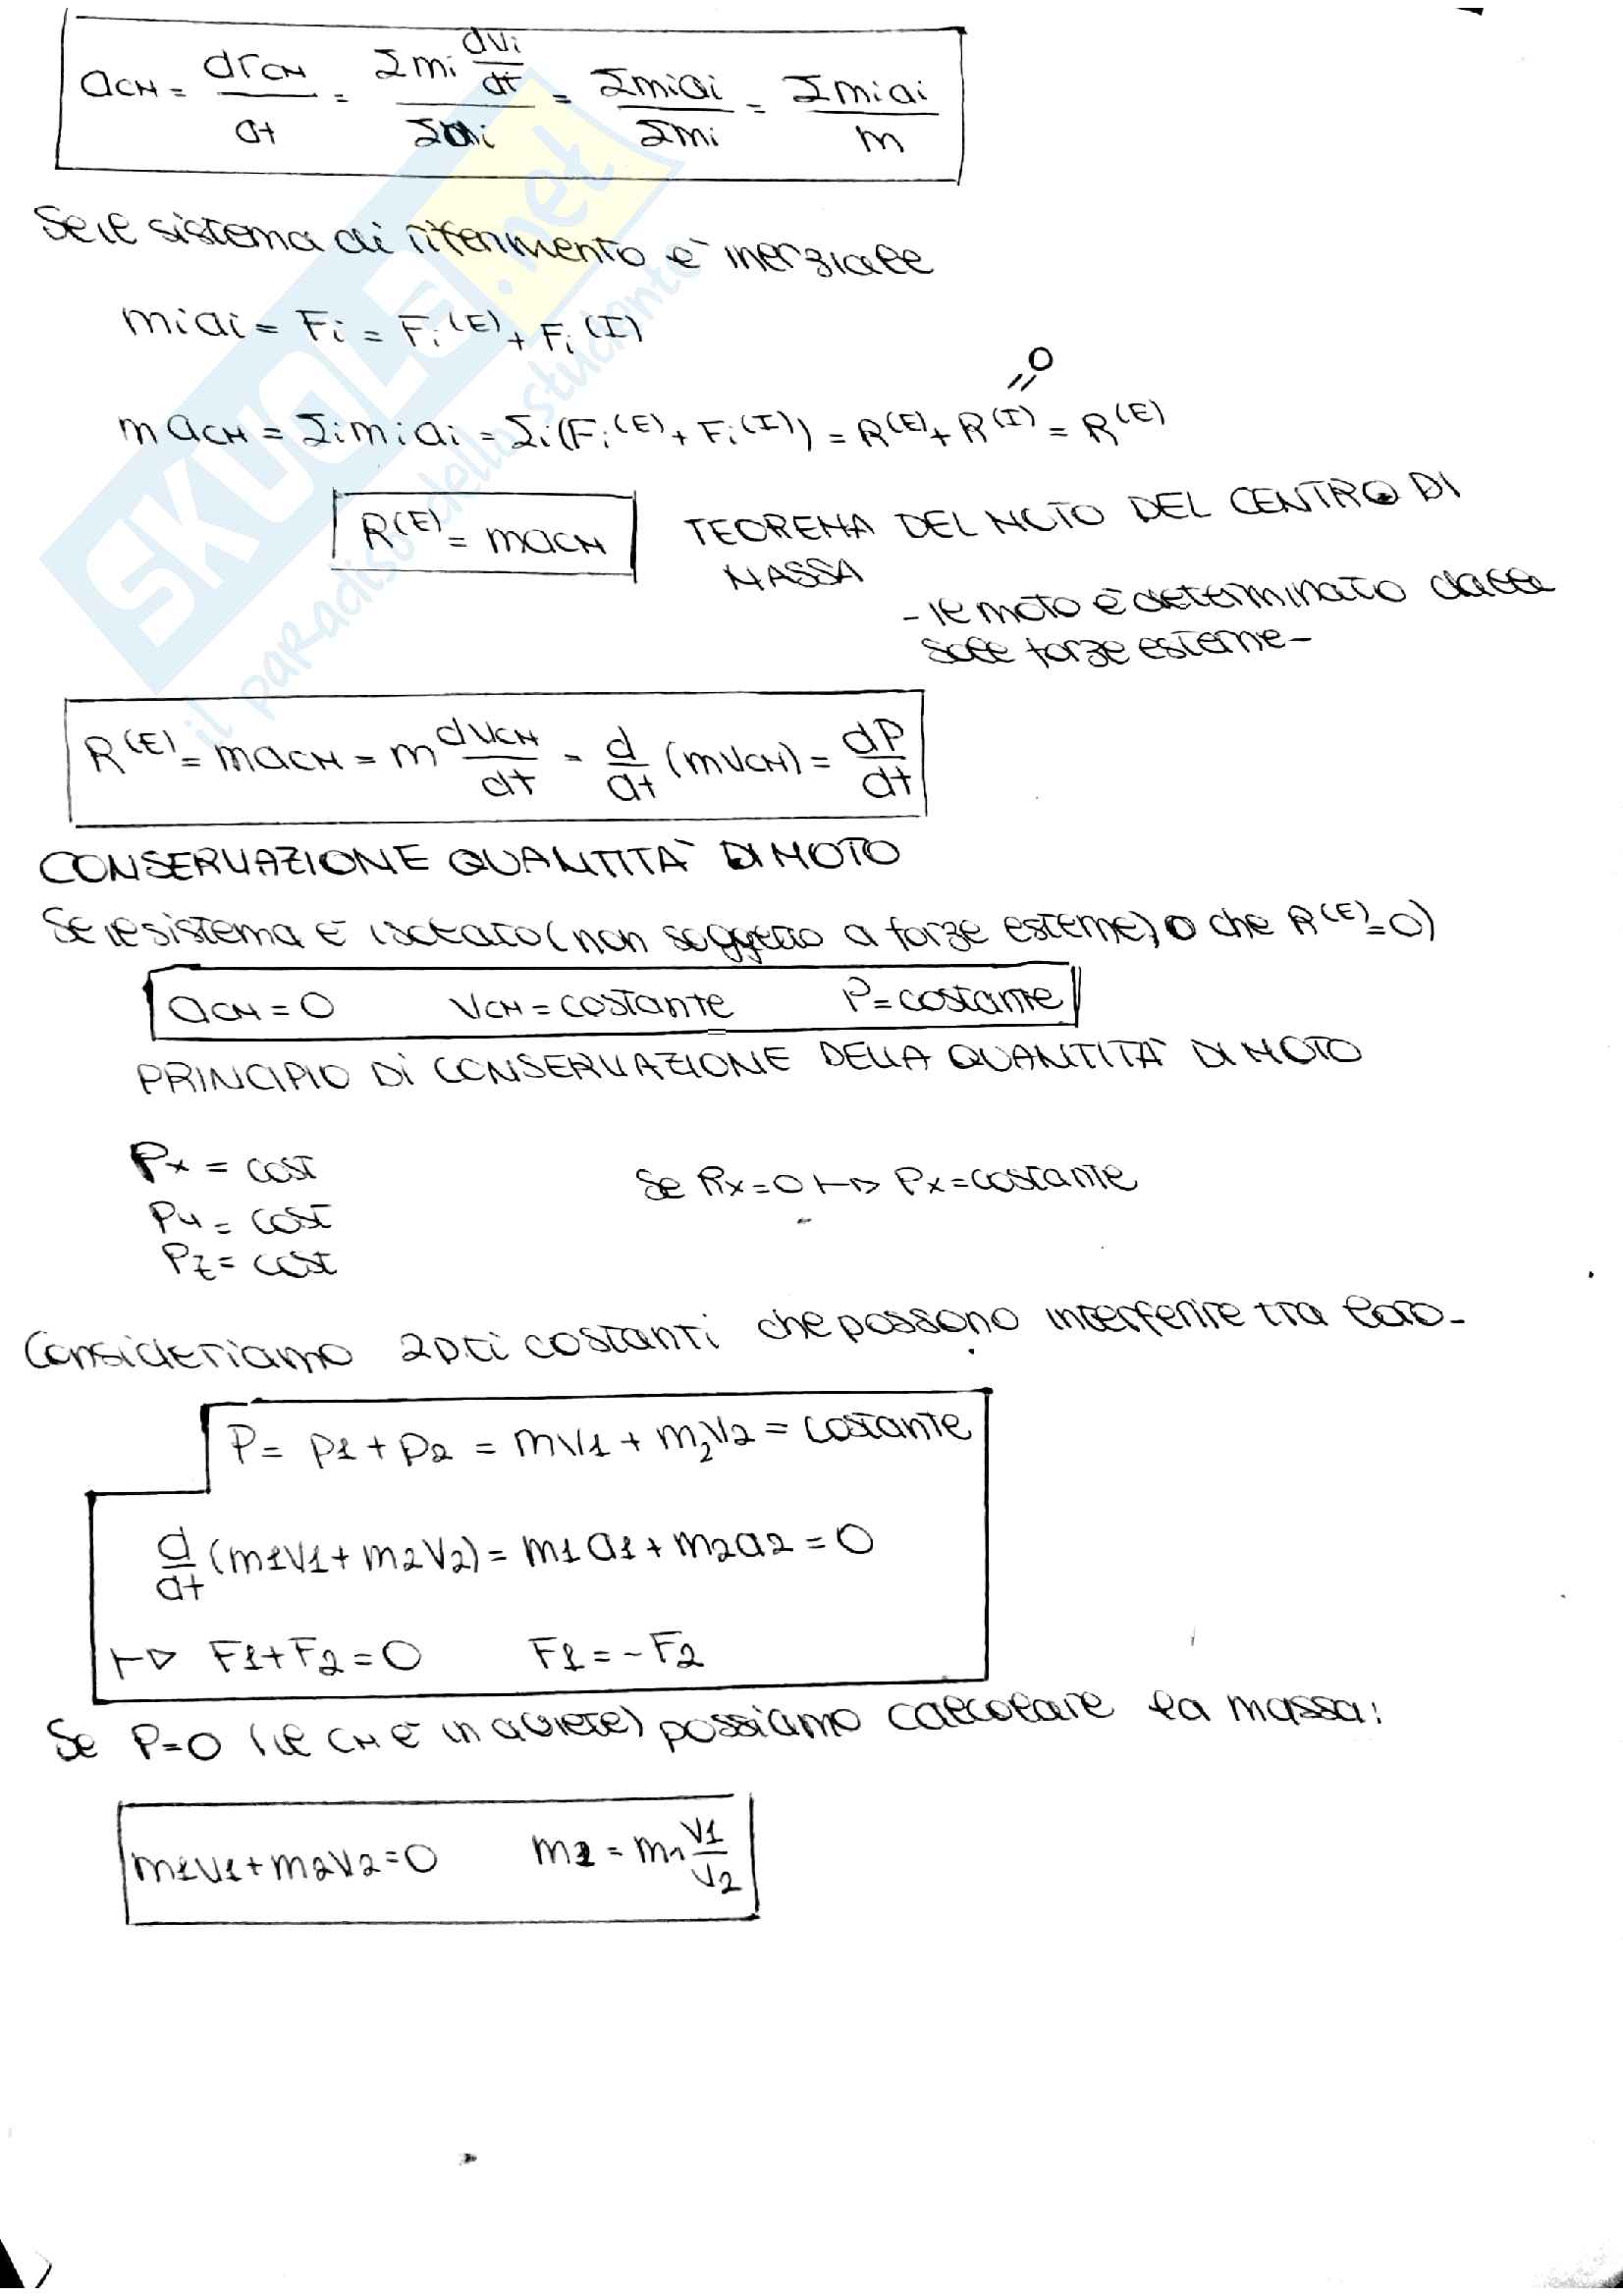 aCM = drCM/dt = Σmi dvi/dt / Σmi = Σmiai/Σmi = Σmiai/m
Se il sistema di riferimento è inerziale
miai = Fi = Fi(E) + Fi(I)
=0
m aCM = Σi mi ai = Σi (Fi(E) + Fi(I)) = R(E) + R(I) = R(E)
R(E) = maCM TEOREMA DEL MOTO DEL CENTRO DI
MASSA
- il moto è determinato dalle
sole forze esterne -
R(E) = maCM = m dvCM/dt = d/dt (mvCM) = dP/dt
CONSERVAZIONE QUANTITA' DI MOTO
Se il sistema è isolato (non soggetto a forze esterne, o che R(E)=0)
aCM = 0 vCM = costante P = costante
PRINCIPIO Di CONSERVAZIONE DELLA QUANTITA' DI MOTO
Px = cost Se Rx = 0 ↦ Px = costante
Py = cost
Pz = cost
Consideriamo 2 p.ti costanti che possono interferire tra loro -
P = p1 + p2 = mv1 + m2v2 = costante
d/dt (m1v1 + m2v2) = m1a1 + m2a2 = 0
↦ F1 + F2 = 0 F1 = -F2
Se P=0 (il CM è in quiete) possiamo calcolare la massa:
m1v1 + m2v2 = 0 m2 = m1 v1/v2
SKUOLA.net
il paradiso dello studente